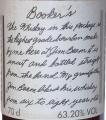 Booker's
The Whiskey in this package is
the highest grade bourbon made
by me here at Jim Beam. It is
uncut and bottled straight
from the barrel. My grandfather
Jim Beam liked his whiskey
from six to eight years
70cl 63.20% VOL